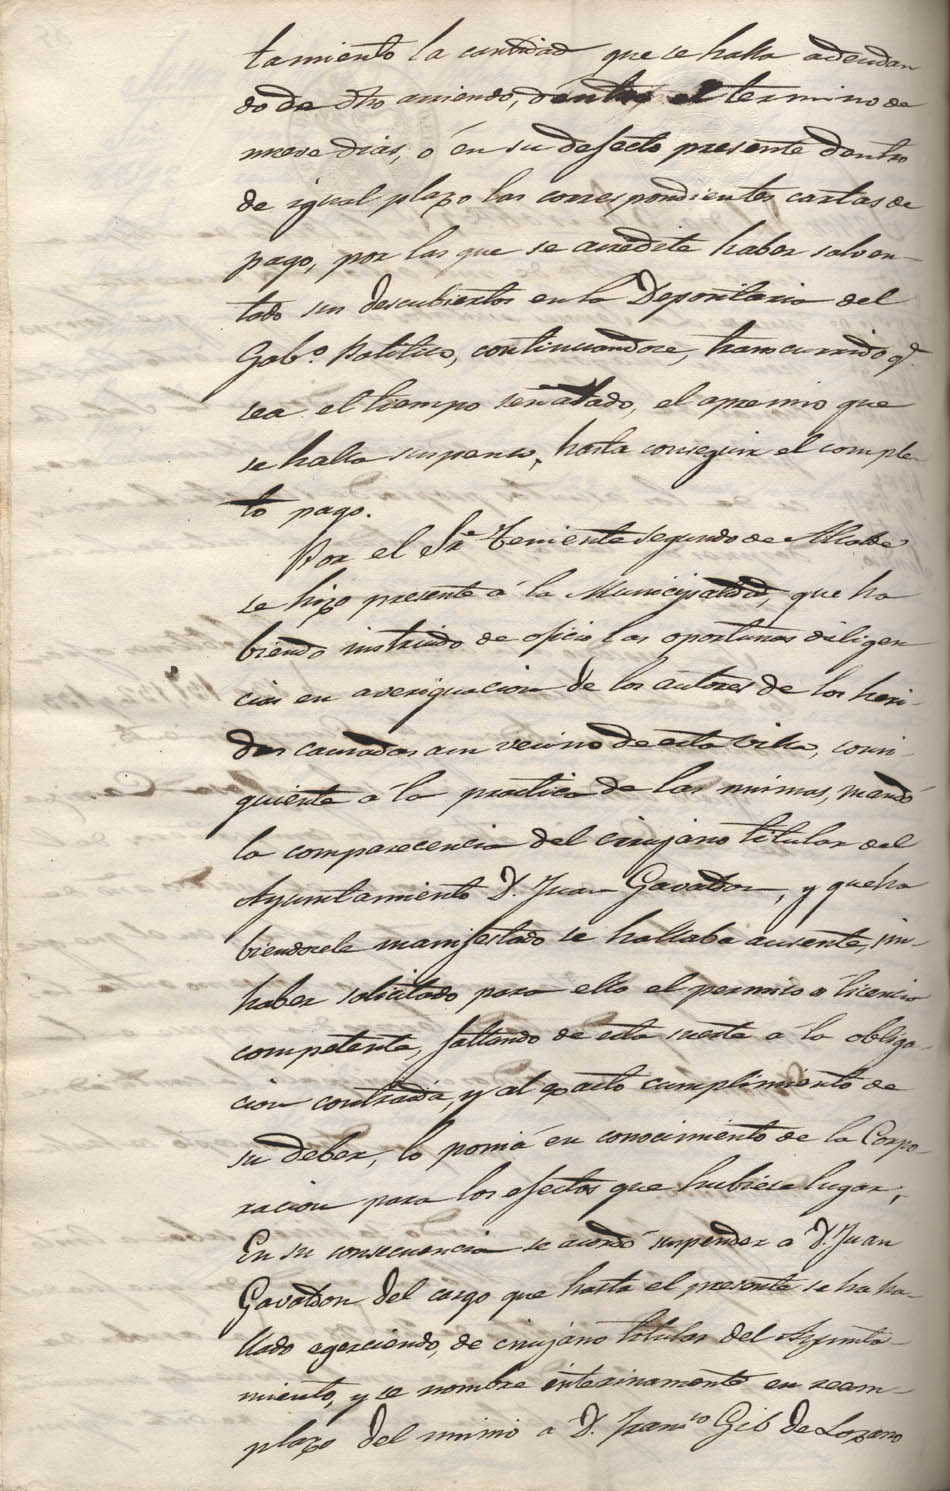 tamiento la cantidad que se halla adeudan
do de dho arriendo, dentro el termino de
nueve dias, ó en su defecto presente dentro
de igual plazo las correspondientes cartas de
pago, por las que se acredite haber solven-
tado sus descubiertos en la Depositaria del
Gobo. Politico, continuandose, transcurrido q.
sea el tiempo señalado, el apremio que
se halla suspenso, hasta conseguir el comple-
to pago.
Por el Sr. Teniente segundo de Alcalde
se hizo presente á la Municipalidad, que ha
biendo instruido de oficio las oportunas diligen
cias en averiguacion de los autores de los heri-
das causadas a un vecino de esta villa, consi-
guiente á la practica de las mismas, mandó
la comparecencia del cirujano titular del
Ayuntamiento D. Juan Gavaldon, y que ha
biendosele manifestado se hallaba ausente, sin-
haber solicitado para ello el permiso ó licencia
competente, faltando de esta suerte á la obliga-
cion contraida, y al exacto cumplimiento de
su deber, lo ponia en conocimiento de la Corpo-
racion para los efectos que hubiese lugar;
En su consecuencia se acordó suspender a D. Juan
Gavaldon del cargo que hasta el presente se ha ha-
llado egerciendo, de cirujano titular del Ayunta-
miento, y se nombre interinamente en reem-
plazo del mismo a D. Franco Gil de Lozano